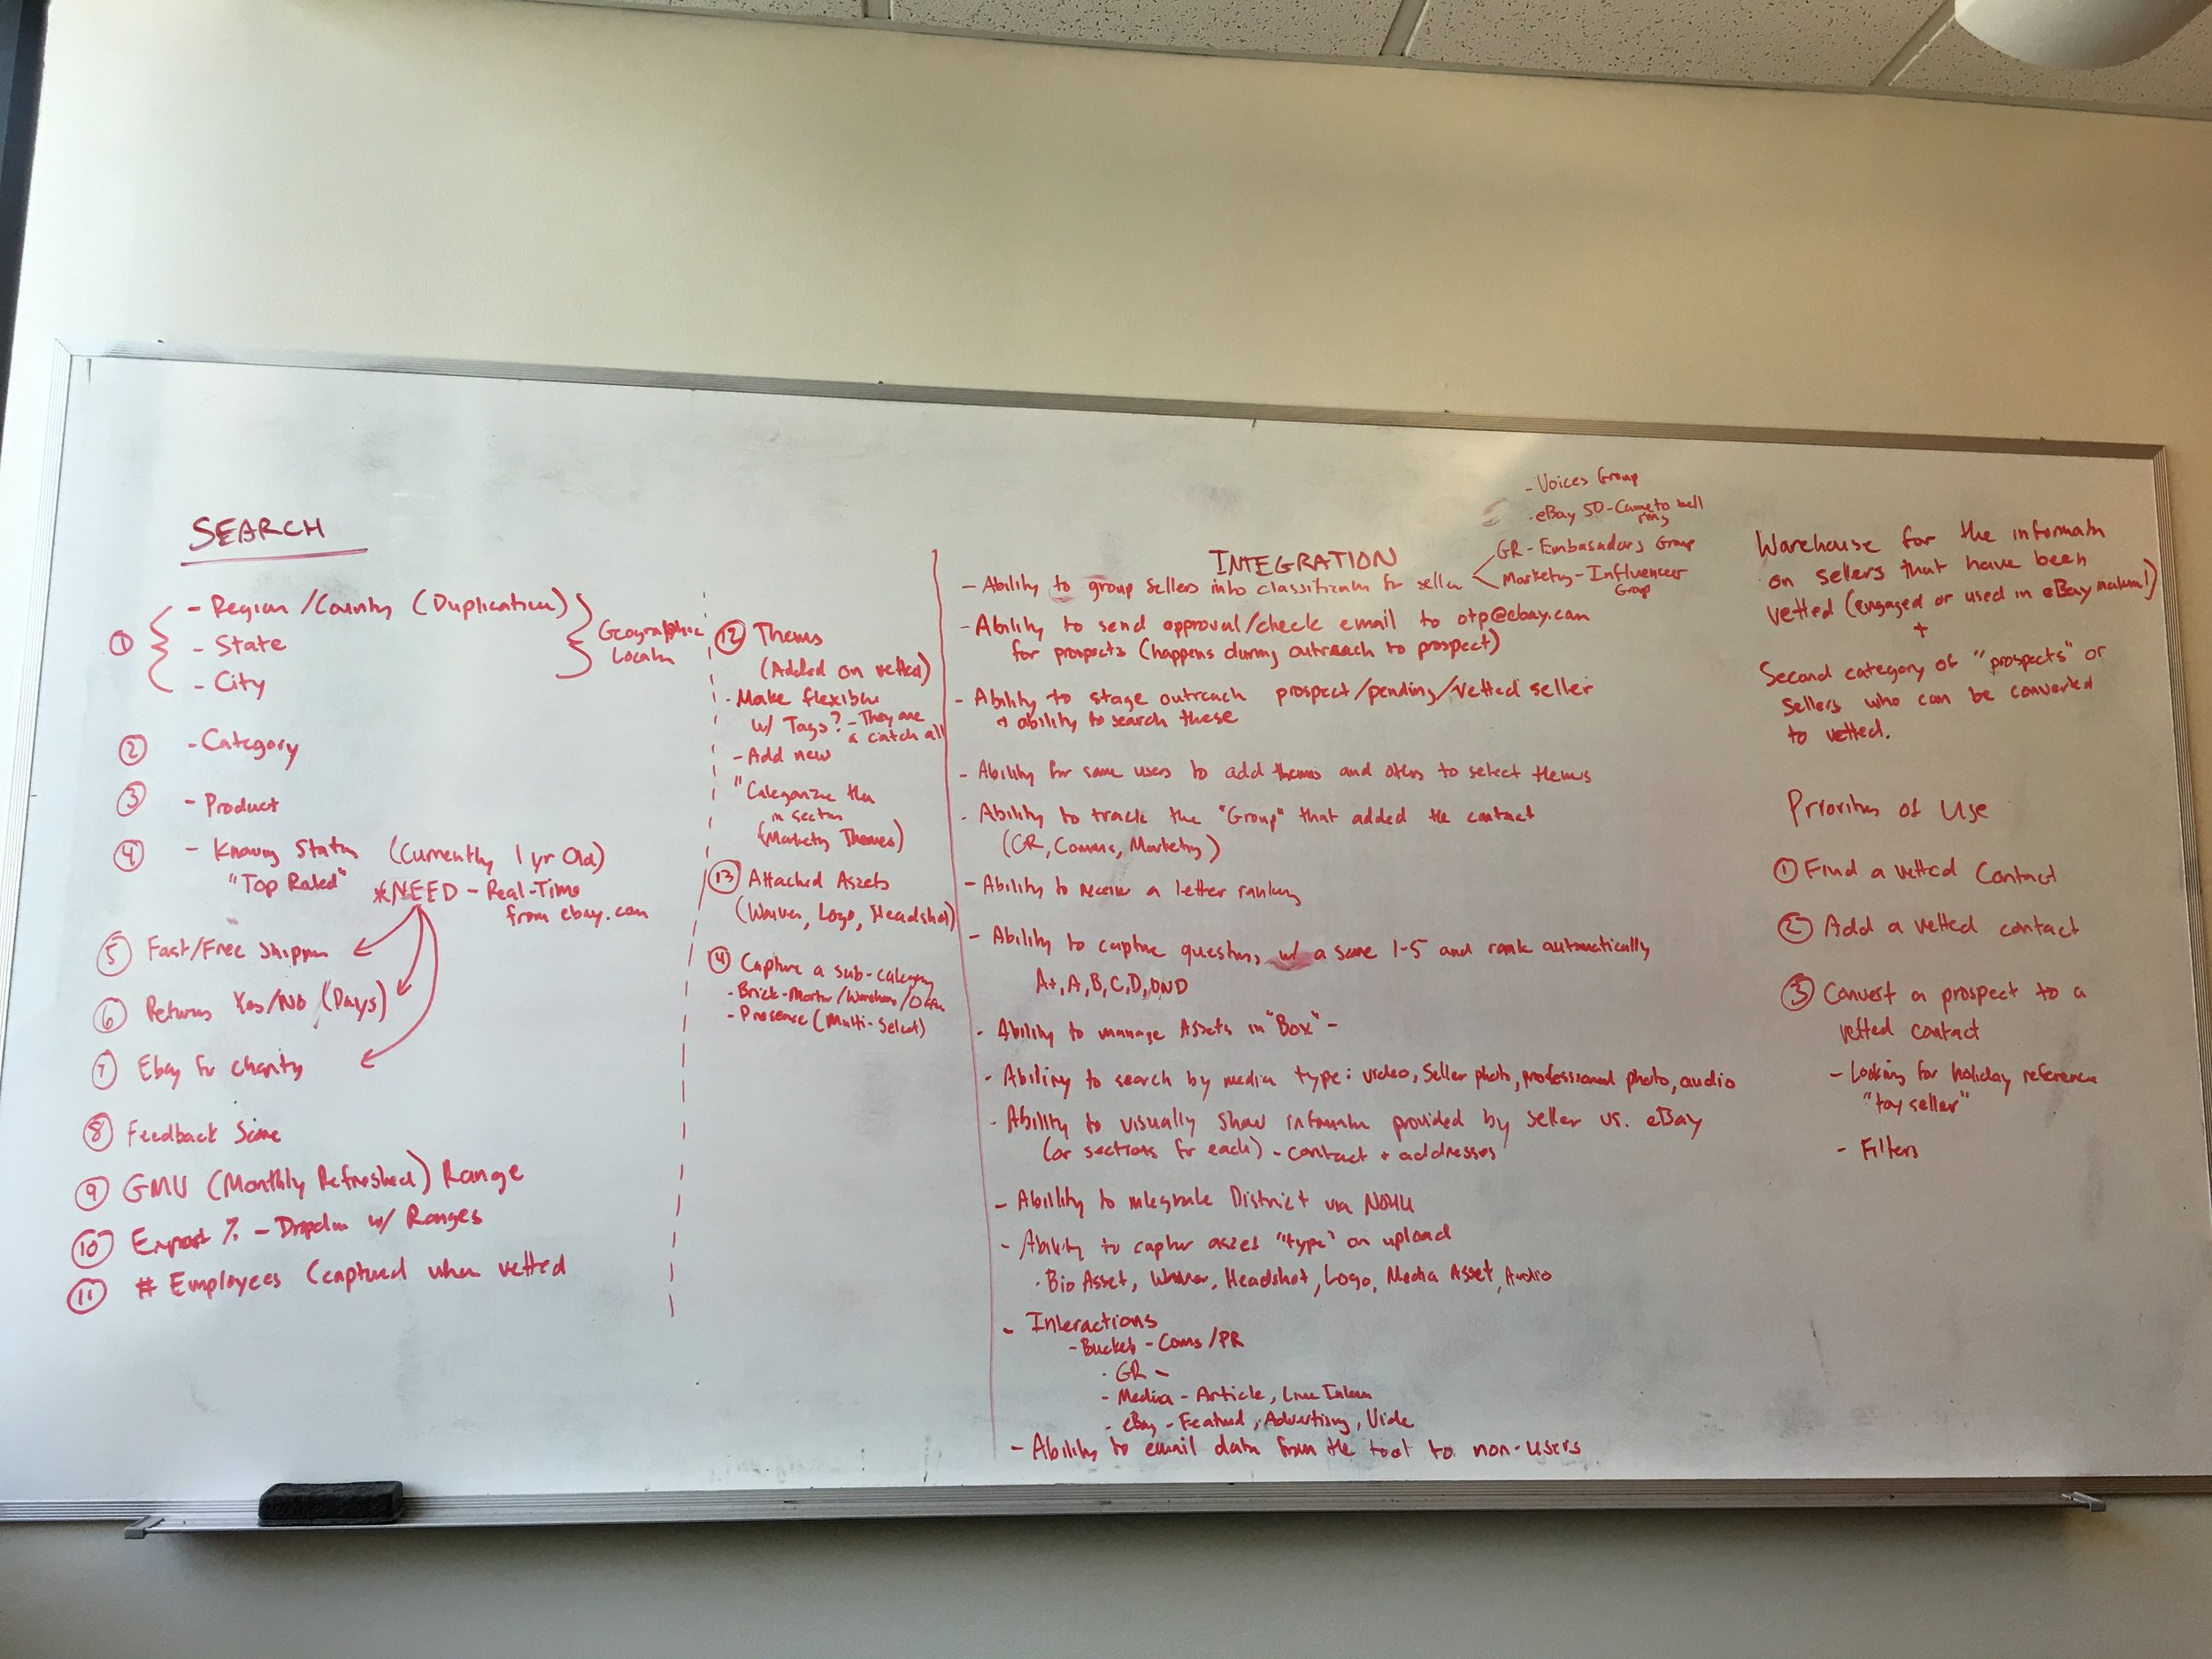 SEARCH
① - Region/County (Duplication)
- State
- City
Geographic
② - Category
③ - Product
④ - Knowing Status (Currently 1 yr Old)
"Top Rated"
*NEED - Real-Time
from ebay.com
⑤ Fast/Free Shippin
⑥ Returns Yes/No (Days)
⑦ Ebay for Charity
⑧ Feedback Score
⑨ GMV (Monthly Refreshed) Range
⑩ Export % - Dropdn w/ Ranges
⑪ # Employees (captured when vetted
⑫ Thems
(Added on vetted)
- Make flexible
w/ Tags? - They are
a catch all
- Add new
"Categorize the
in
(Marketg Themes)
⑬ Attached Assets
(Waiver, Logo, Headshot)
Capture a sub-category
- Brick-Mortar/Warehouse/Office
- Presence (Multi-Select)
INTEGRATION
- Voices Group
- eBay 50 - Came to bell
ring
GR - Embasadors Group
Marketing - Influencer
Group
- Ability to group sellers into for seller
- Ability to send approval/check email to otp@ebay.com
for prospects (happens during outreach to prospect)
- Ability to stage outreach prospect/pending/vetted seller
+ ability to search these
- Ability for some users to add thems and others to select thems
- Ability to track the "Group" that added the contact
(GR, Comms, Marketing)
- Ability to receive a letter ranking
- Ability to capture questions w/ a score 1-5 and rank automatically
A+, A, B, C, D, DND
- Ability to manage Assets in "Box" -
- Ability to search by media type: video, Seller photo, professional photo, audio
- Ability to visually show informatn provided by seller vs. eBay
(or sections for each) - contact + addresses
- Ability to integrate District via
- Ability to captur asset "type" on upload
- Bio Asset, Waiver, Headshot, Logo, Media Asset, Audio
- Interactions
- Buckets - Coms/PR
- GR -
- Media - Article, Live
- eBay - Featured, Advertising, Vide
- Ability to email data from the tool to non-users
Warehouse for the informatn
on sellers that have been
vetted (engaged or used in eBay material)
+
Second category of "prospects" or
Sellers who can be converted
to vetted.
Priority of Use
① Find a vetted Contact
② Add a vetted contact
③ Convert a prospect to a
vetted contact
- Looking for holiday reference
"toy seller"
- Filters